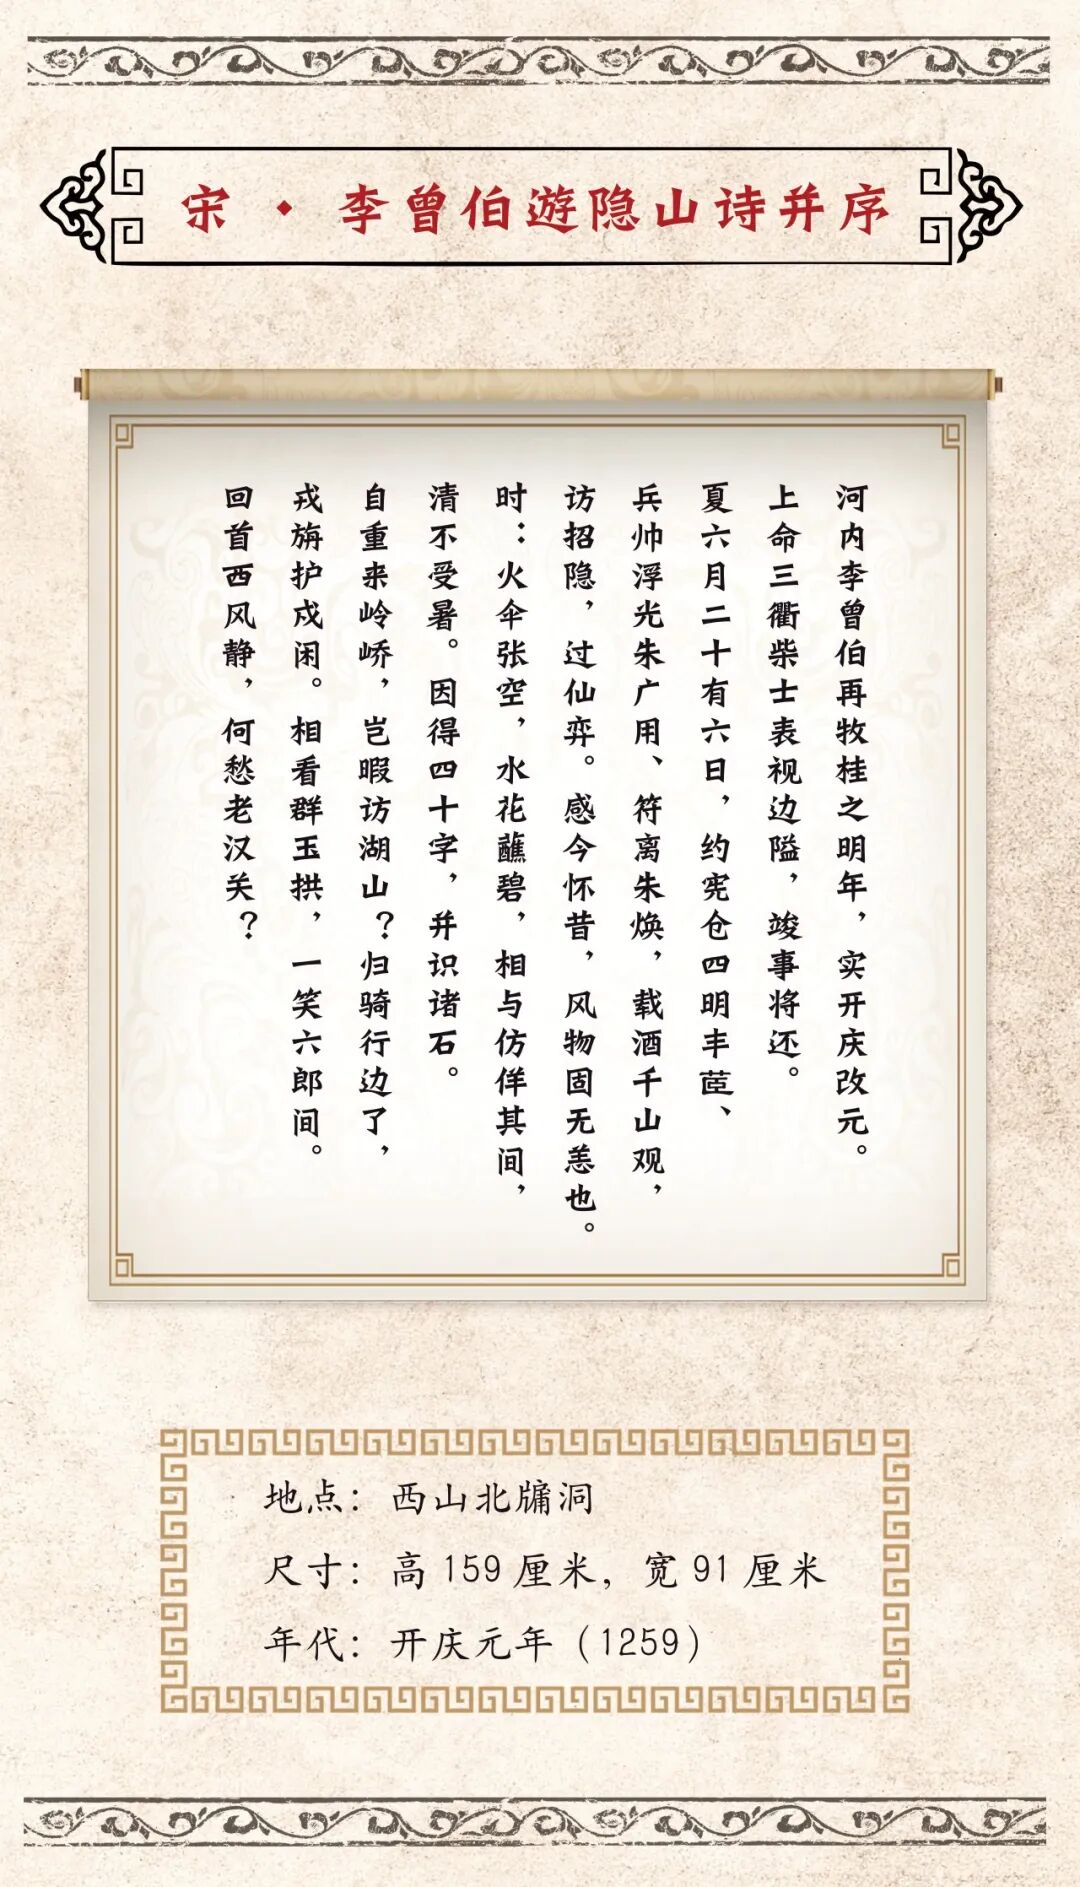 宋·李曾伯遊隐山诗并序
河内李曾伯再牧桂之明年，实开庆改元。
上命三衢柴士表视边隘，竣事将还。
夏六月二十有六日，约宪仓四明丰茝、
兵帅浮光朱广用、符离朱焕，载酒千山观，
访招隐，过仙弈。感今怀昔，风物固无恙也。
时：火伞张空，水花蘸碧，相与仿佯其间，
清不受暑。因得四十字，并识诸石。
自重来岭峤，岂暇访湖山？归骑行边了，
戎旃护戍闲。相看群玉拱，一笑六郎间。
回首西风静，何愁老汉关？
地点：西山北牗洞
尺寸：高159厘米，宽91厘米
年代：开庆元年（1259）